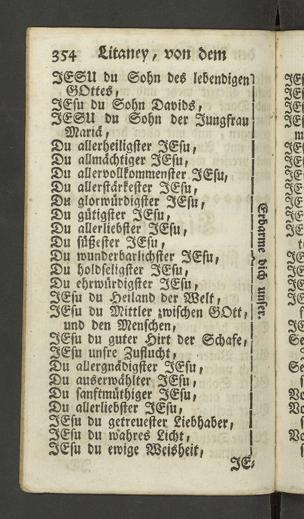 354 Litaney, von dem
JESU du Sohn des lebendigen
GOttes,
JEsu du Sohn Davids,
JESU du Sohn der Jungfrau
Mariä,
Du allerheiligster JEsu,
Du allmächtiger JEsu,
Du allervollkommenster JEsu,
Du allerstärkester JEsu,
Du glorwürdigster JEsu,
Du gütigster JEsu,
Du allerliebster JEsu,
Du süßester JEsu,
Du wunderbarlichster JEsu,
Du holdseligster JEsu,
Du ehrwürdigster JEsu,
JEsu du Heiland der Welt,
JEsu du Mittler zwischen GOtt,
und den Menschen,
JEsu du guter Hirt der Schafe,
JEsu unsre Zuflucht,
Du allergnädigster JEsu,
Du auserwählter JEsu,
Du sanftmüthiger JEsu,
Du allerliebster JEsu,
JEsu du getreuester Liebhaber,
JEsu du wahres Licht,
JEsu du ewige Weisheit,
Erbarme dich unser.
JE-